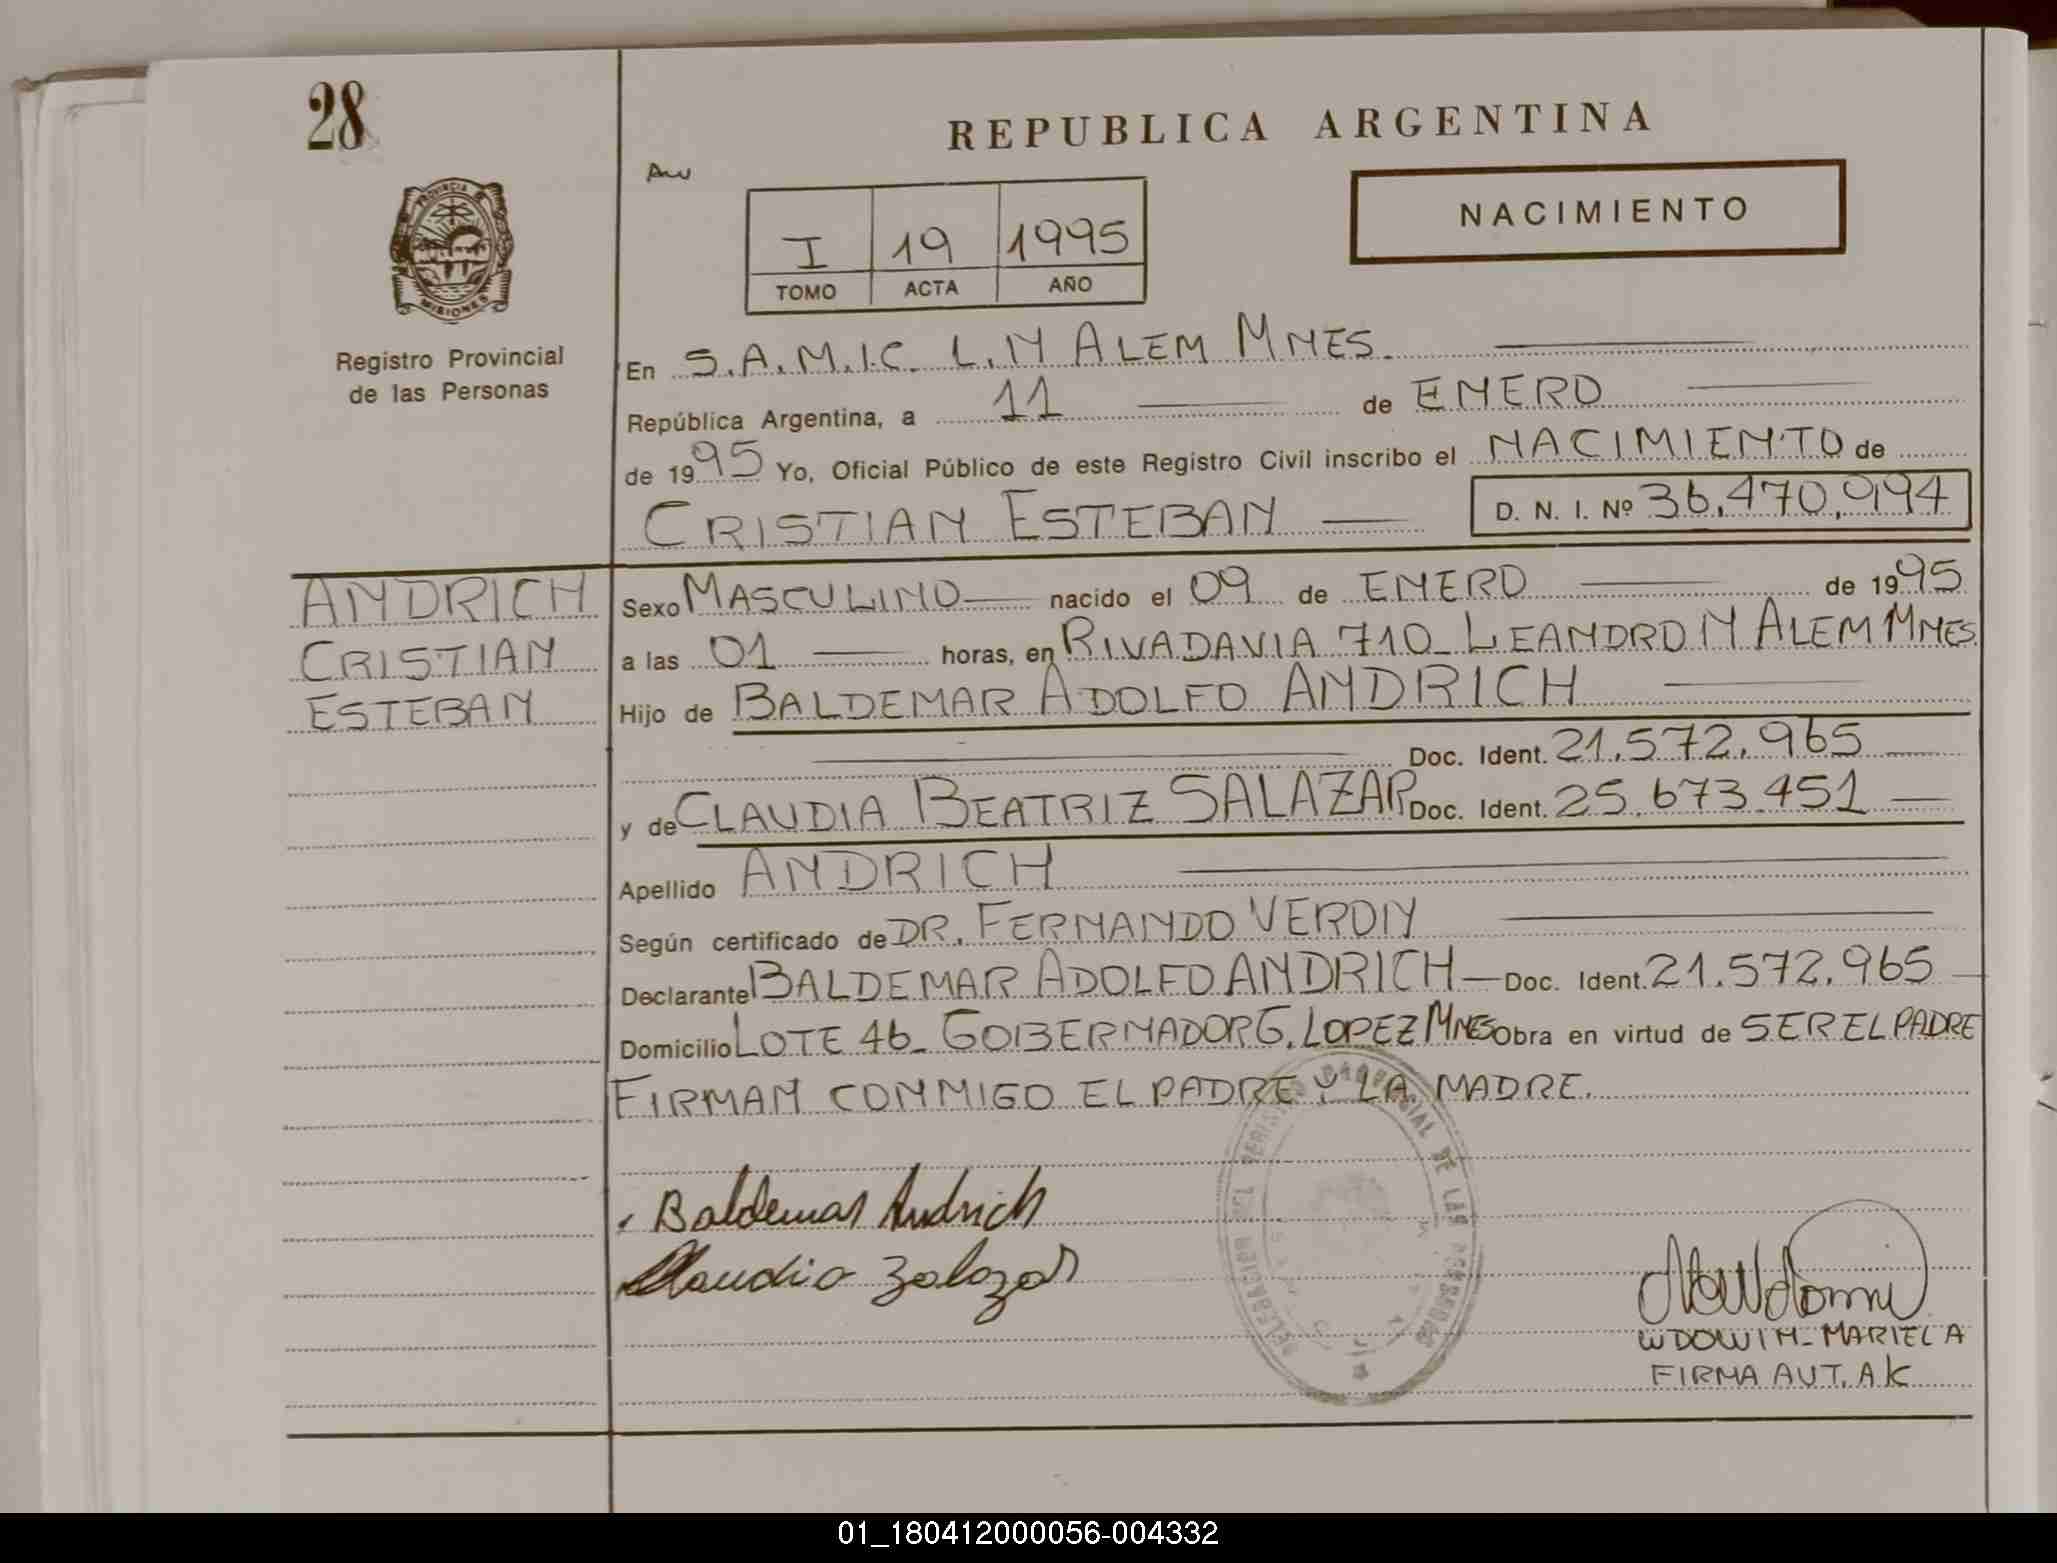 28
REPUBLICA ARGENTINA
NACIMIENTO
PROVINCIA
MISIONES
I 19 1995
TOMO ACTA AÑO
Registro Provincial
de las Personas
En S.A.M.I.C. L.N ALEM MNES.
República Argentina, a 11 de ENERO
de 1995 Yo, Oficial Público de este Registro Civil inscribo el NACIMIENTO de
CRISTIAN ESTEBAN D. N. I. Nº 36.470.994
ANDRICH
CRISTIAN
ESTEBAN
Sexo MASCULINO nacido el 09 de ENERO de 1995
a las 01 horas, en RIVADAVIA 710_ LEANDRO N ALEM MNES.
Hijo de BALDEMAR ADOLFO ANDRICH
Doc. Ident. 21.572.965
y de CLAUDIA BEATRIZ SALAZAR Doc. Ident. 25.673.451
Apellido ANDRICH
Según certificado de DR. FERNANDO VERON
Declarante BALDEMAR ADOLFO ANDRICH Doc. Ident. 21.572.965
Domicilio LOTE 46_ GOBERNADOR G. LOPEZ MNES Obra en virtud de SER EL PADRE
FIRMAN CONMIGO EL PADRE Y LA MADRE.
Baldemar Andrich
Claudia Zalazar
DELEGACION DEL REGISTRO PROVINCIAL DE LAS PERSONAS
WDOWIN_MARIELA
FIRMA AUT. AK
01_180412000056-004332